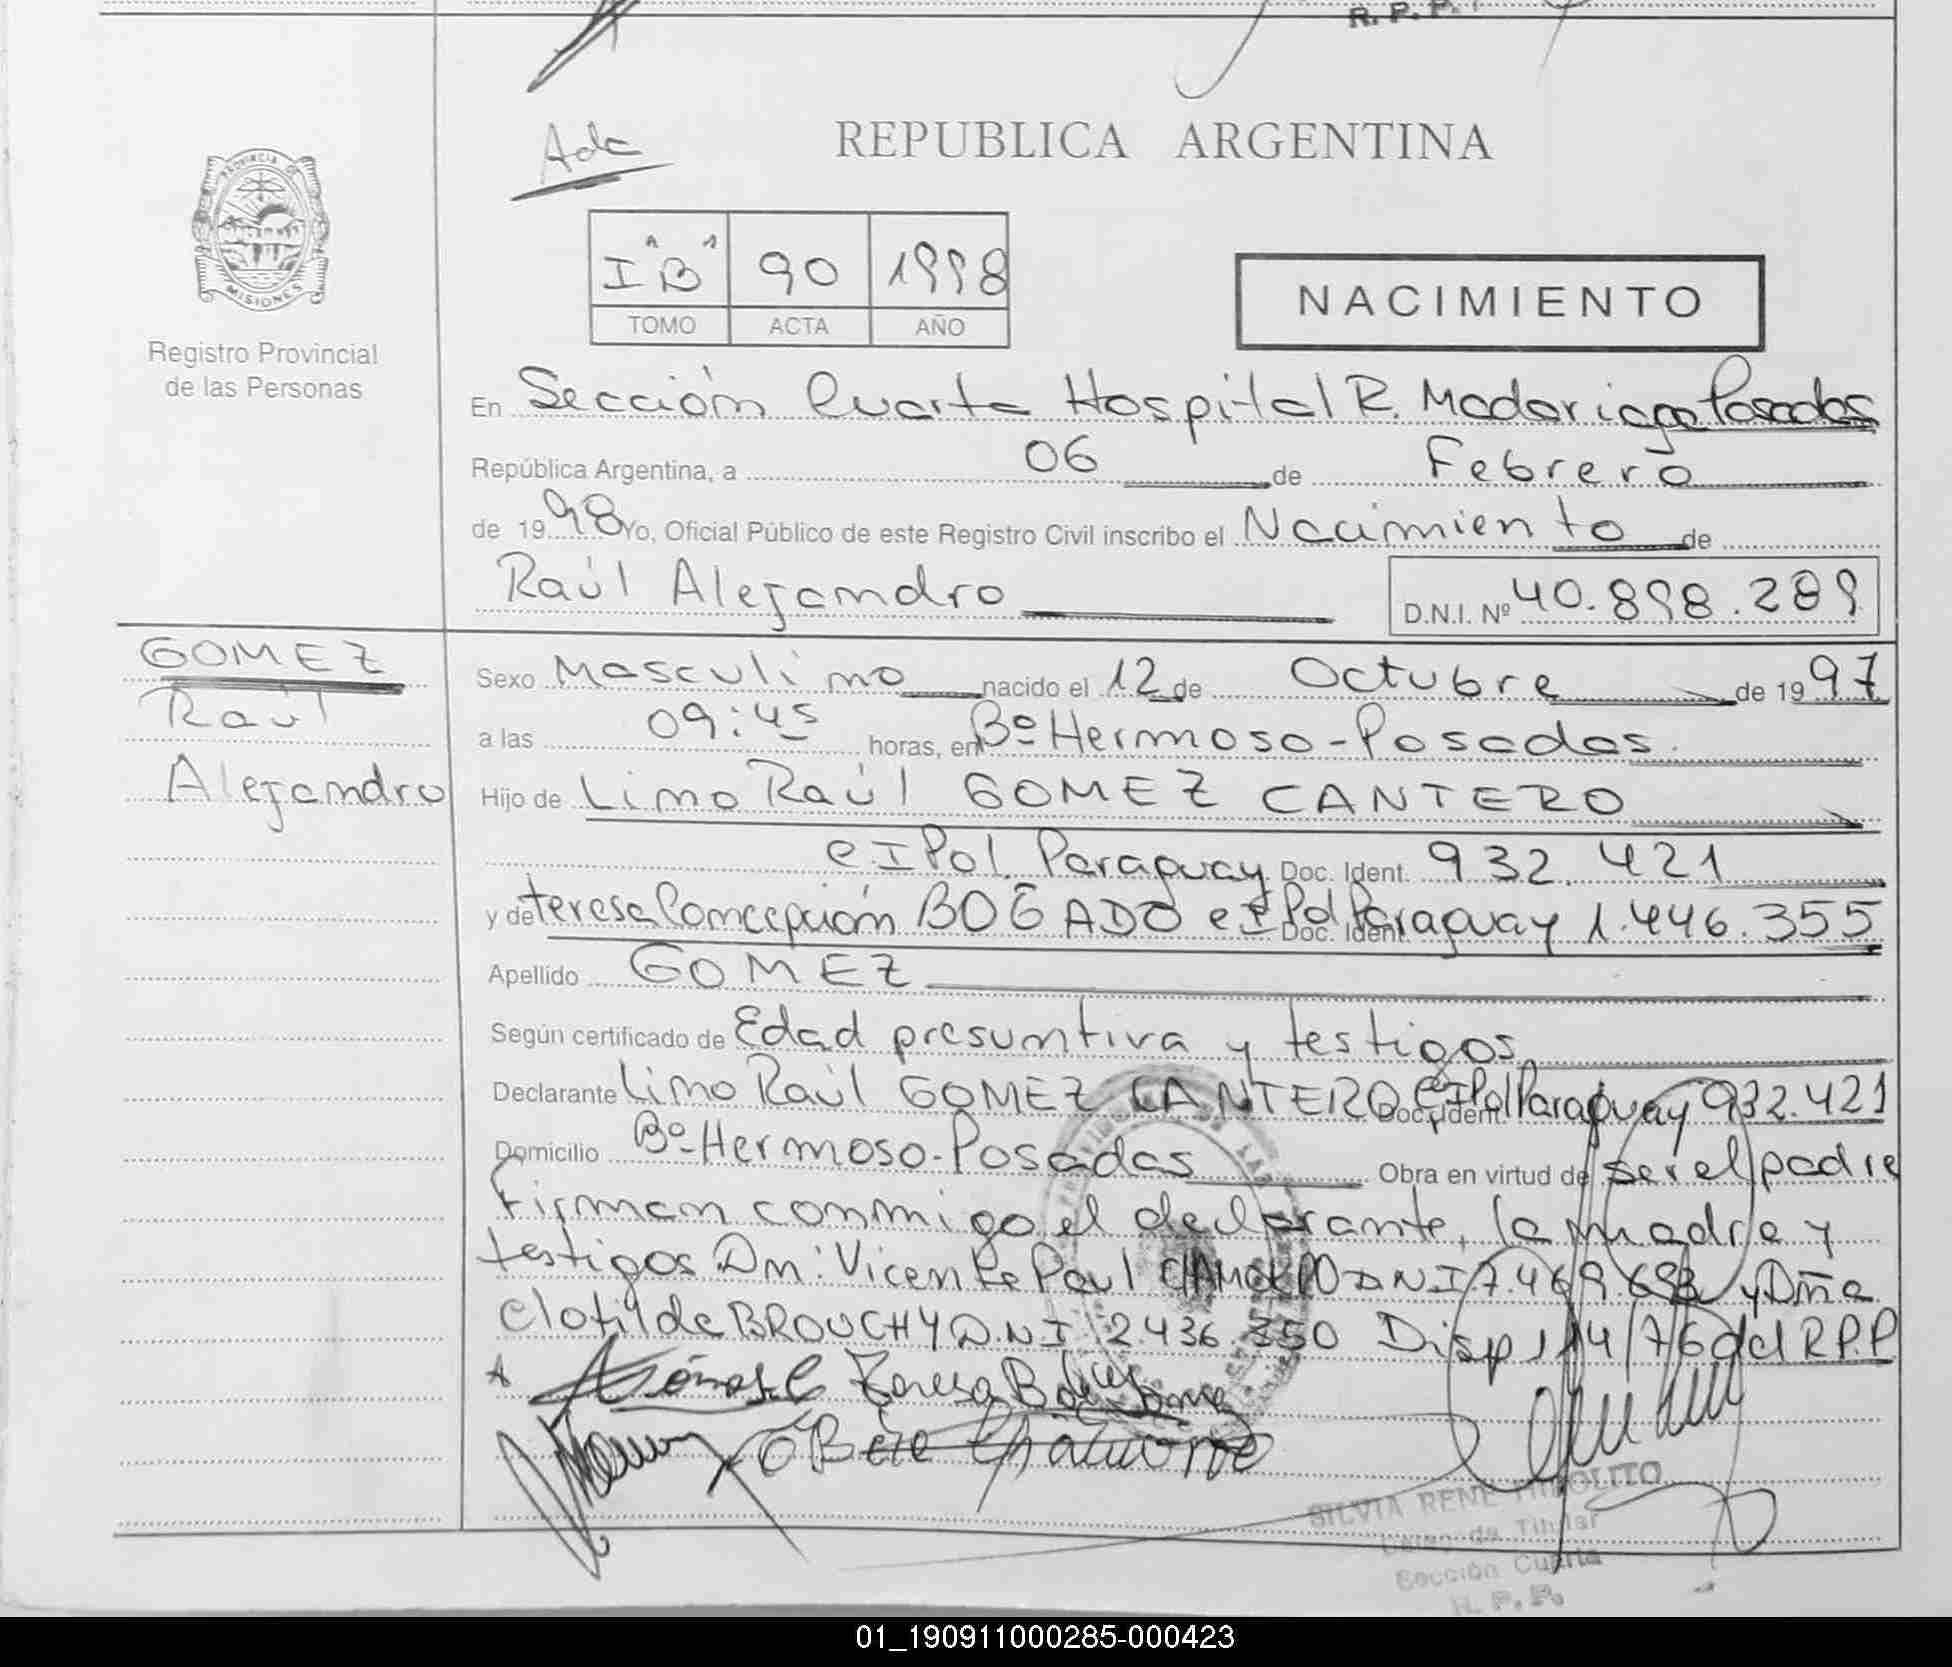 R. P. P.
Ada
REPUBLICA ARGENTINA
PROVINCIA DE
MISIONES
Registro Provincial
de las Personas
I "B" 90 1998
TOMO ACTA AÑO
NACIMIENTO
En Sección Cuarta Hospital R. Madariaga Posadas
República Argentina, a 06 de Febrero
de 1998 Yo, Oficial Público de este Registro Civil inscribo el Nacimiento de
Raúl Alejandro D.N.I. Nº 40.898.289
GOMEZ
Raúl
Alejandro
Sexo Masculino nacido el 12 de Octubre de 1997
a las 09:45 horas, en Bº Hermoso-Posadas.
Hijo de Limo Raúl GOMEZ CANTERO
C.I Pol. Paraguay Doc. Ident. 932.421
y de teresa Concepción BOGADO C I Pol Paraguay Doc. Ident. 1.446.355
Apellido GOMEZ
Según certificado de Edad presuntiva y testigos
Declarante Limo Raúl GOMEZ CANTERO C.I Pol Paraguay Doc. Ident. 932.421
Domicilio Bº Hermoso-Posadas Obra en virtud de ser el padre
Firman conmigo el declarante, la madre y
testigos Dn: Vicente Paul DNI 7.469. y Dña
Clotilde BROUCHY D.N.I 2.436.350 Disp 114/76 del R.P.P
Teresa
SILVIA RENE HIPOLITO
Titular
Sección Cuarta
R. P. P.
01_190911000285-000423